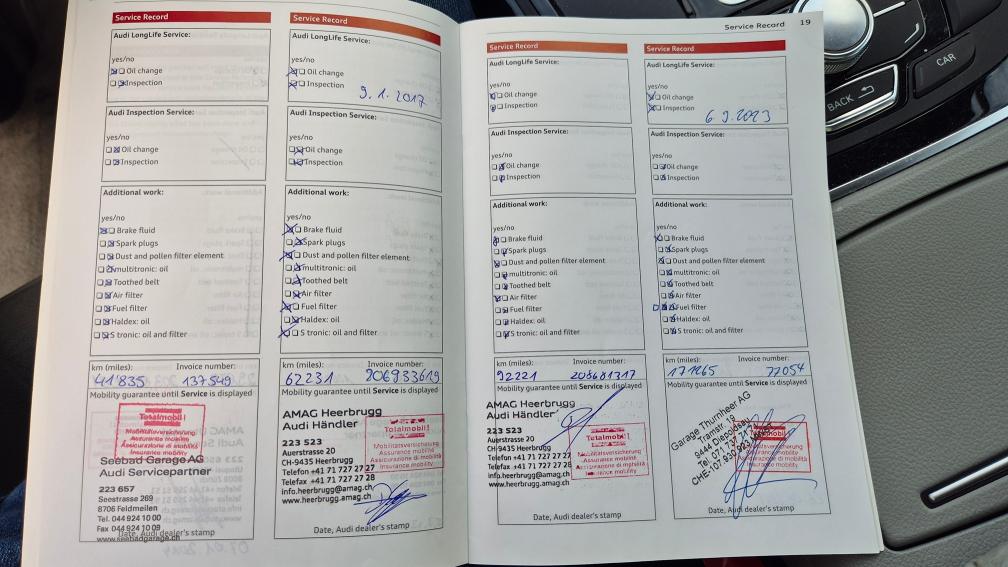 Service Record 19
Service Record
Audi LongLife Service:
yes/no
Oil change
Inspection
Audi Inspection Service:
yes/no
Oil change
Inspection
Additional work:
yes/no
Brake fluid
Spark plugs
Dust and pollen filter element
multitronic: oil
Toothed belt
Air filter
Fuel filter
Haldex: oil
S tronic: oil and filter
km (miles): Invoice number:
41'835 137549
Mobility guarantee until Service is displayed
Totalmobil!
Mobilitätsversicherung
Assurance mobilité
Assicurazione di mobilità
Insurance mobility
Seebad Garage AG
Audi Servicepartner
223 657
Seestrasse 269
8706 Feldmeilen
Tel. 044 924 10 00
Fax 044 924 10 09
www.seebadgarage.ch
Date, Audi dealer's stamp
Service Record
Audi LongLife Service:
yes/no
Oil change
Inspection
9.1.2017
Audi Inspection Service:
yes/no
Oil change
Inspection
Additional work:
yes/no
Brake fluid
Spark plugs
Dust and pollen filter element
multitronic: oil
Toothed belt
Air filter
Fuel filter
Haldex: oil
S tronic: oil and filter
km (miles): Invoice number:
62231 206933619
Mobility guarantee until Service is displayed
AMAG Heerbrugg
Audi Händler
223 523
Auerstrasse 20
CH-9435 Heerbrugg
Telefon +41 71 727 27 27
Telefax +41 71 727 27 28
info.heerbrugg@amag.ch
www.heerbrugg.amag.ch
Totalmobil!
Mobilitätsversicherung
Assurance mobilité
Assicurazione di mobilità
Insurance mobility
Date, Audi dealer's stamp
Service Record
Audi LongLife Service:
yes/no
Oil change
Inspection
Audi Inspection Service:
yes/no
Oil change
Inspection
Additional work:
yes/no
Brake fluid
Spark plugs
Dust and pollen filter element
multitronic: oil
Toothed belt
Air filter
Fuel filter
Haldex: oil
S tronic: oil and filter
km (miles): Invoice number:
92221 205681317
Mobility guarantee until Service is displayed
AMAG Heerbrugg
Audi Händler
223 523
Auerstrasse 20
CH-9435 Heerbrugg
Telefon +41 71 727 27 27
Telefax +41 71 727 27 28
info.heerbrugg@amag.ch
www.heerbrugg.amag.ch
Totalmobil!
Mobilitätsversicherung
Assurance mobilité
Assicurazione di mobilità
Insurance mobility
Date, Audi dealer's stamp
Service Record
Audi LongLife Service:
yes/no
Oil change
Inspection
6.9.2023
Audi Inspection Service:
yes/no
Oil change
Inspection
Additional work:
yes/no
Brake fluid
Spark plugs
Dust and pollen filter element
multitronic: oil
Toothed belt
Air filter
Fuel filter
Haldex: oil
S tronic: oil and filter
km (miles): Invoice number:
77054
Mobility guarantee until Service is displayed
Garage Thurnheer AG
Tramstr. 19
9444 Diepoldsau
Date, Audi dealer's stamp
BACK
CAR